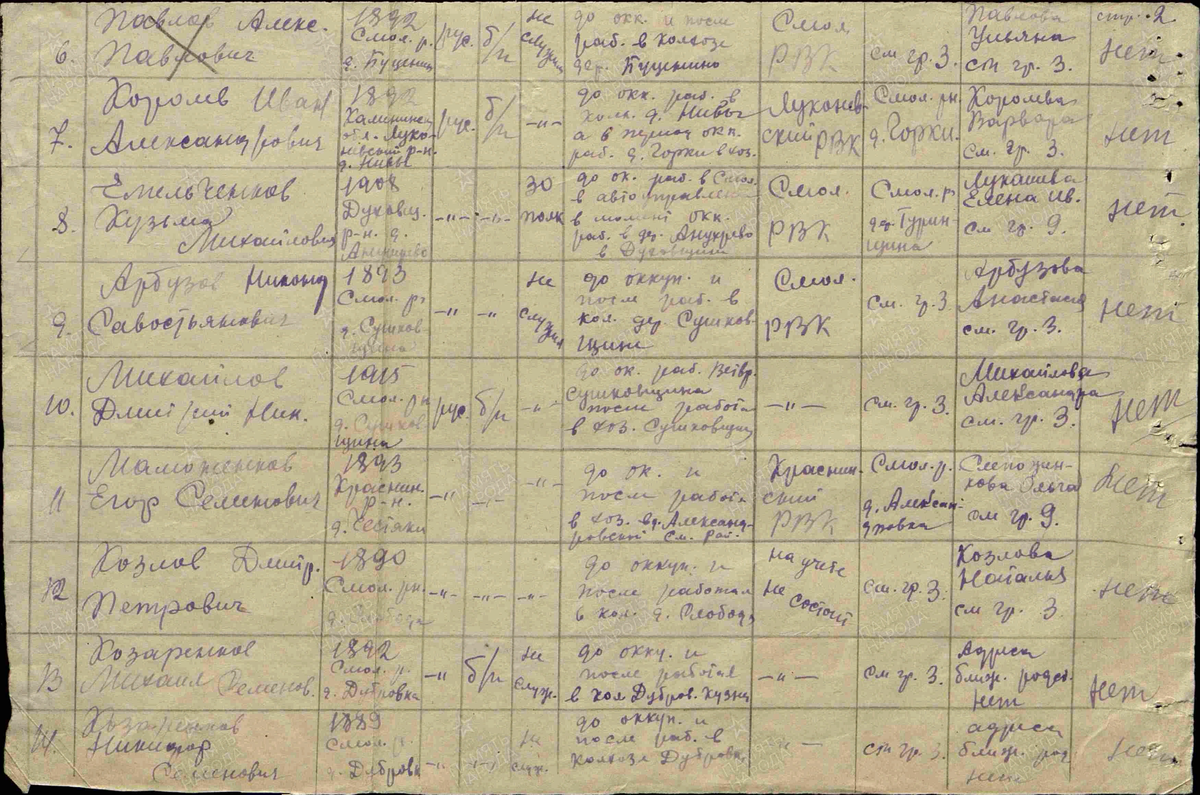 стр. 2
6. Павлов Алекс. Павлович
1892 Смол. р. д. Куценино
рус. б/п не служил
до окк. и после раб. в колхозе дер. Куценино
Смол. РВК
см гр. 3.
Павлова Ульяна см гр. 3.
нет
7. Королев Иван Александрович
1892 Калининск. обл. р-н. д. Нивы
рус. б/п -"-
до окк. раб. в колх. д. Нивы а в период окк. раб. д. Горки в хоз.
РВК
Смол. рн д. Горки.
Королева Варвара см. гр. 3.
нет
8. Емельченков Кузьма Михайлович
1908 Духовщ. р-н. д.
-"- -"- 30 полк
до ок. раб. в Смол. в автоуправлен. в момент окк. раб. в дер. в Духовщин.
Смол. РВК
Смол. р дер. Туринщина
Лукашева Елена Ив. см гр. 9.
нет
9. Арбузов Никонд Савостьянович
1893 Смол. р. д. Сушковщина
-"- -"- не служил
до оккуп. и посля раб. в кол. дер. Сушковщине
Смол. РВК
см. гр. 3
Арбузова Анастасия см. гр. 3.
нет
10. Михайлов Дмитрий Ник.
1915 Смол. рн д. Сушковщина
рус. б/п -"-
до ок. раб. Сушковщина после работа в хоз. Сушковщин
-"-
см. гр. 3.
Михайлова Александра см. гр. 3.
нет
11 Маможенков Егор Семенович
1893 Краснин. р-н.
-"- -"- -"-
до ок. и после работа в хоз. вд. Александровской См. рай.
Краснинский РВК
Смол. р. д. Александровка
Ольга см гр. 9.
нет
12 Козлов Дмитр. Петрович
1890 Смол. рн. д. Слобода
-"- -"- -"-
до оккуп. и после работал в кол. д. Слобода
на учете не состоит
см. гр. 3.
Козлова Наталья см гр. 3
нет
13 Козаренков Михаил Семенов.
1892 Смол. р. д. Дубровка
-"- б/п не служ.
до окку. и после работал в кол Дубров.
-"-
см гр. 3.
Адреса ближ. родст. нет
нет
14. Козаренков Никифор Семенович
1889 Смол. р. д. Дубровка
-"- -"- не служ.
до оккуп. и после раб. в колхозе Дубровка
-"-
см гр. 3.
адреса ближ. род нет
нет